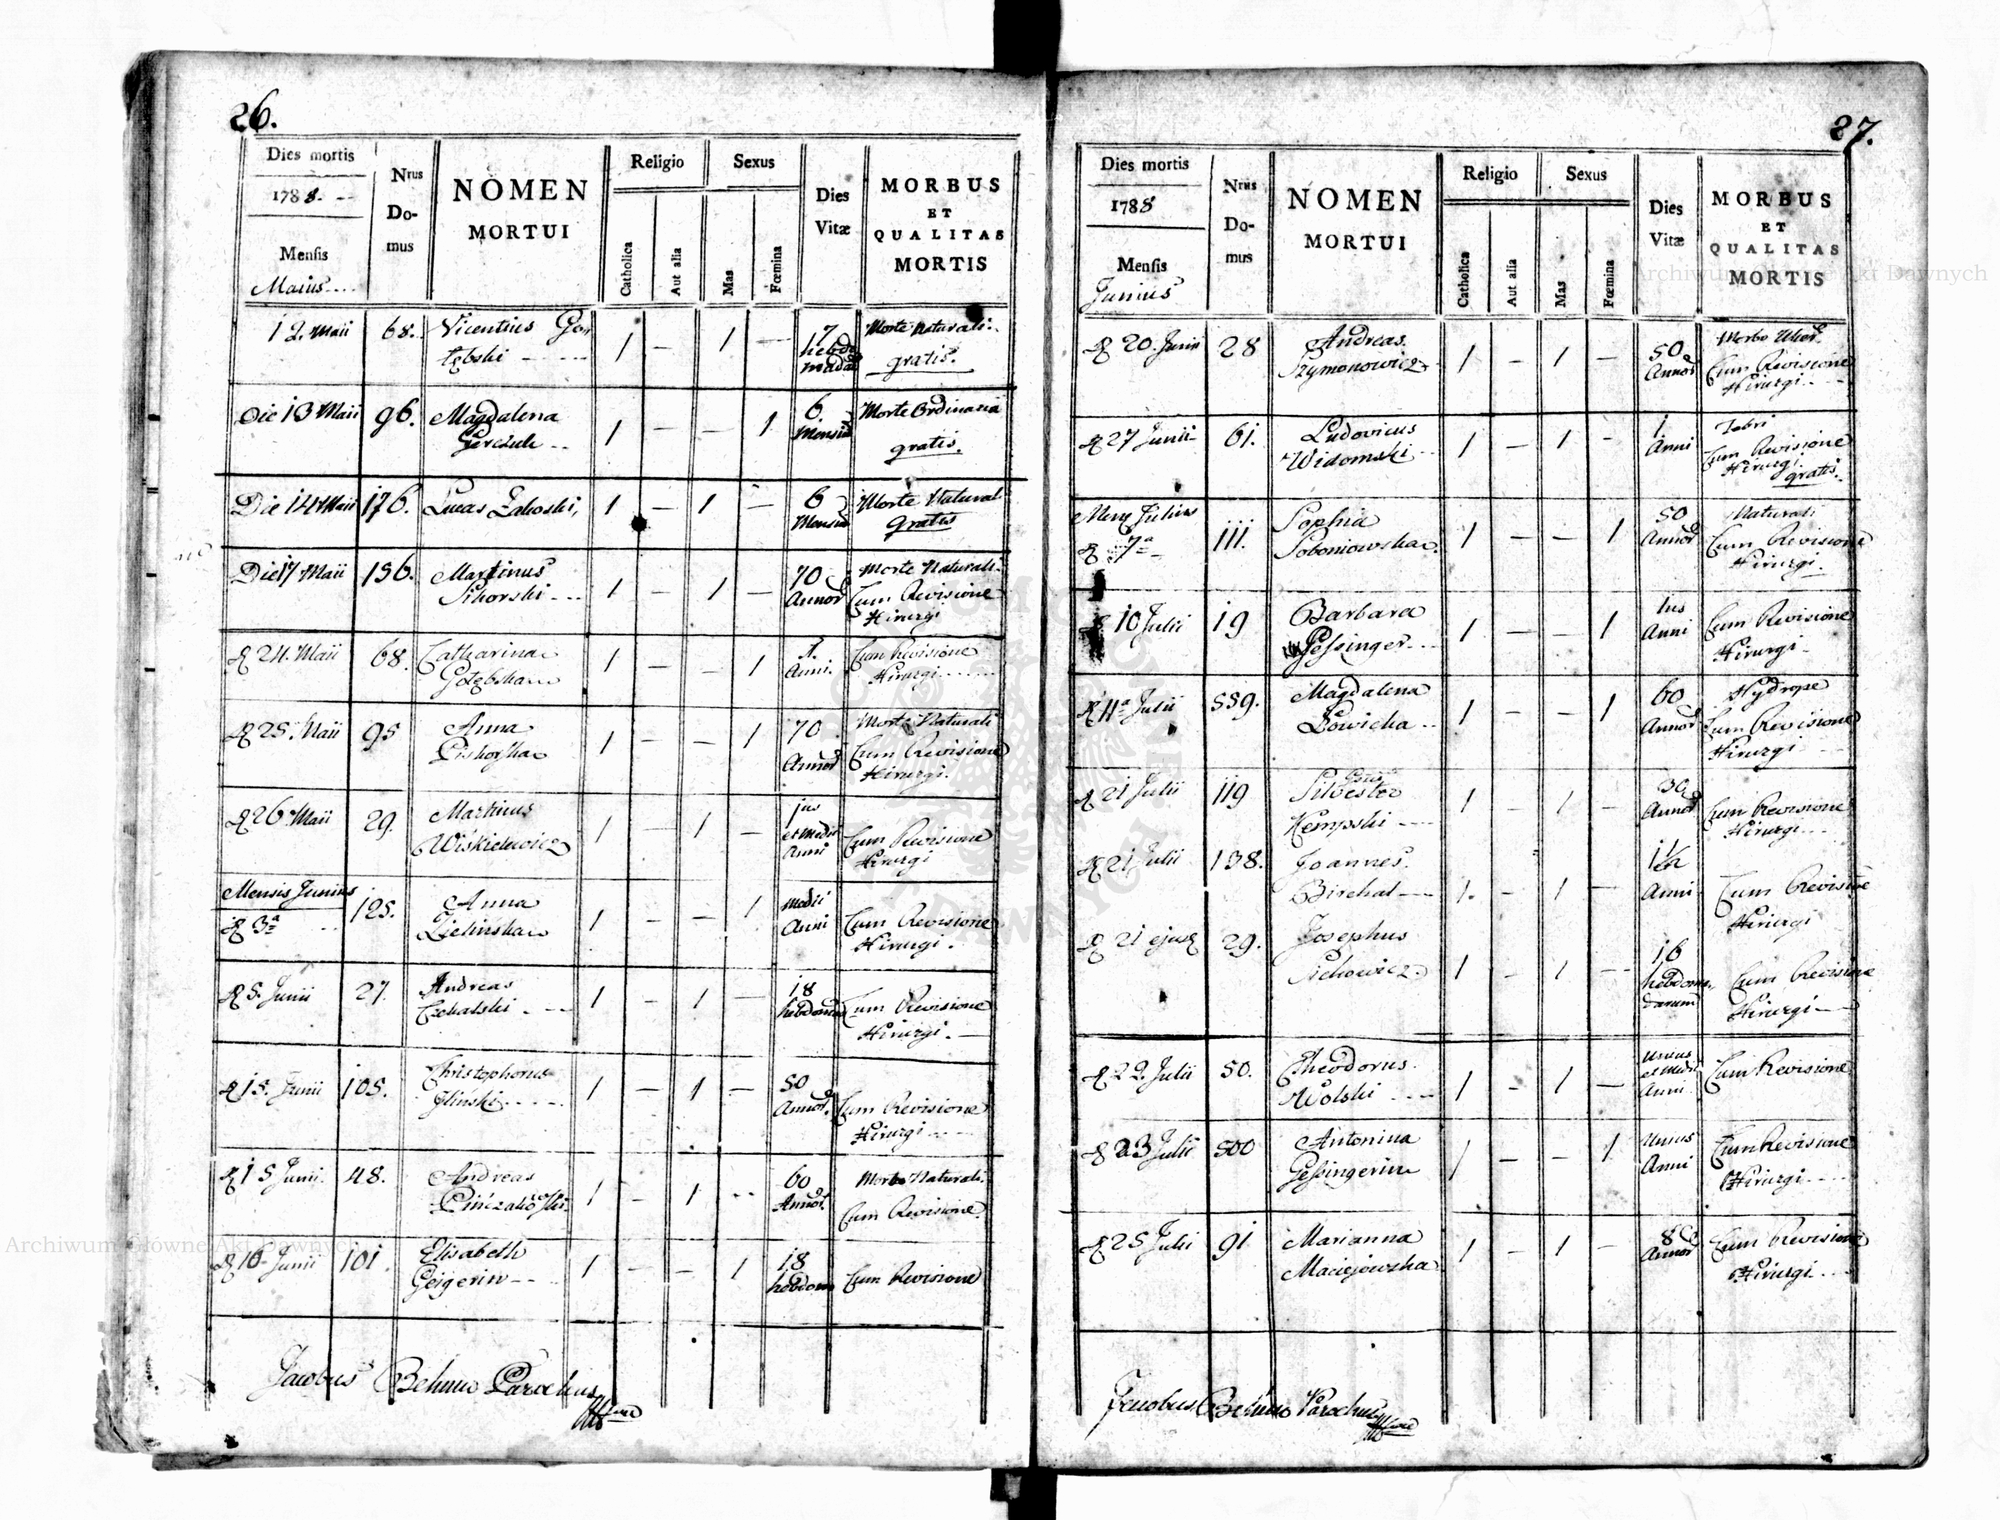 26.
Dies mortis
1788.
Mensis
Maius
Nrus
Do-
mus
NOMEN
MORTUI
Religio
Catholica
Aut alia
Sexus
Mas
Fœmina
Dies
Vitæ
MORBUS
ET
QUALITAS
MORTIS
12. Maii 68. Vicentius Go
łębski 1 — 1 — 7 hebdo
madar Morte Naturali
gratis.
Die 13 Maii 96. Magdalena
1 — — 1 6.
Mensiu Morte Ordinaria
gratis.
Die 14 Maii 176. Lucas Zaboski, 1 — 1 — 6
Mensiu Morte Natural
gratis
Die 17 Maii 156. Martinus
Sikorski 1 — 1 — 70
Annor Morte Naturali
Cum Revisione
Hirurgi
D 24. Maii 68. Catharina
Gołębska 1 — — 1 1.
Anni. Cum Revisione
Hirurgi
D 25. Maii 95 Anna
1 — — 1 70
Annor Morte Naturali
Cum Revisione
Hirurgi.
D 26 Maii 29. Martinus
Wiśkielewicz 1 — 1 — jus
et Medii
Anni Cum Revisione
Hirurgi
Mensis Junius
D 3a 125. Anna
Zielińska 1 — — 1 Medii
Anni Cum Revisione
Hirurgi.
D 5. Junii 27. Andreas
1 — 1 — 18
hebdomad Cum Revisione
Hirurgi.
D 15. Junii 105. Christophorus
Gliński 1 — 1 — 50
Annor. Cum Revisione
Hirurgi
D 15 Junii. 48. Andreas
1 — 1 60
Annor. Morbo Naturali.
Cum Revisione.
D 16 Junii 101. Elisabeth
Geigerin 1 — — 1 18
hebdom Cum Revisione
Jacobus Behm Parochus
27.
Dies mortis
1788
Mensis
Junius
Nrus
Do-
mus
NOMEN
MORTUI
Religio
Catholica
Aut alia
Sexus
Mas
Fœmina
Dies
Vitæ
MORBUS
ET
QUALITAS
MORTIS
D 20. Junii 28 Andreas
Szymonowicz 1 — 1 — 50
Annor Morbo
Cum Revisione
Hirurgi
D 27 Junii 61. Ludovicus
Widomski 1 — 1 — 1.
Anni Febri
Cum Revisione
Hirurgi.
gratis.
Mens Julius
D 7a 111. Sophia
Soboniowska 1 — — 1 50
Annor Naturali
Cum Revisione
Hirurgi.
D 10 Julii 19 Barbara
Gessinger 1 — — 1 1us
Anni Cum Revisione
Hirurgi
D 11a Julii 559. Magdalena
Łowicka 1 — — 1 60
Annor Hydrope
Cum Revisione
Hirurgi
D 21 Julii 119 Silvester
Kempski 1 — 1 — 30
Annor Cum Revisione
Hirurgi
D 21 Julii 138. Joannes
Birchal 1. — 1 — 1½
Anni Cum Revisione
Hirurgi
D 21 ejusd 29. Josephus
Sichowicz 1 — 1 — 16
hebdoma-
darum Cum Revisione
Hirurgi
D 22. Julii 50. Theodorus
Wolski 1 — 1 — Unius
et Medii
Anni Cum Revisione
D 23 Julii 500 Antonina
Gessingerin 1 — — 1 Unius
Anni Cum Revisione
Hirurgi
D 25 Julii 91 Marianna
Maciejowska 1 — 1 — 8
Annor Cum Revisione
Hirurgi
Jacobus Behm Parochus
Archiwum Główne Akt Dawnych
Archiwum Główne Akt Dawnych